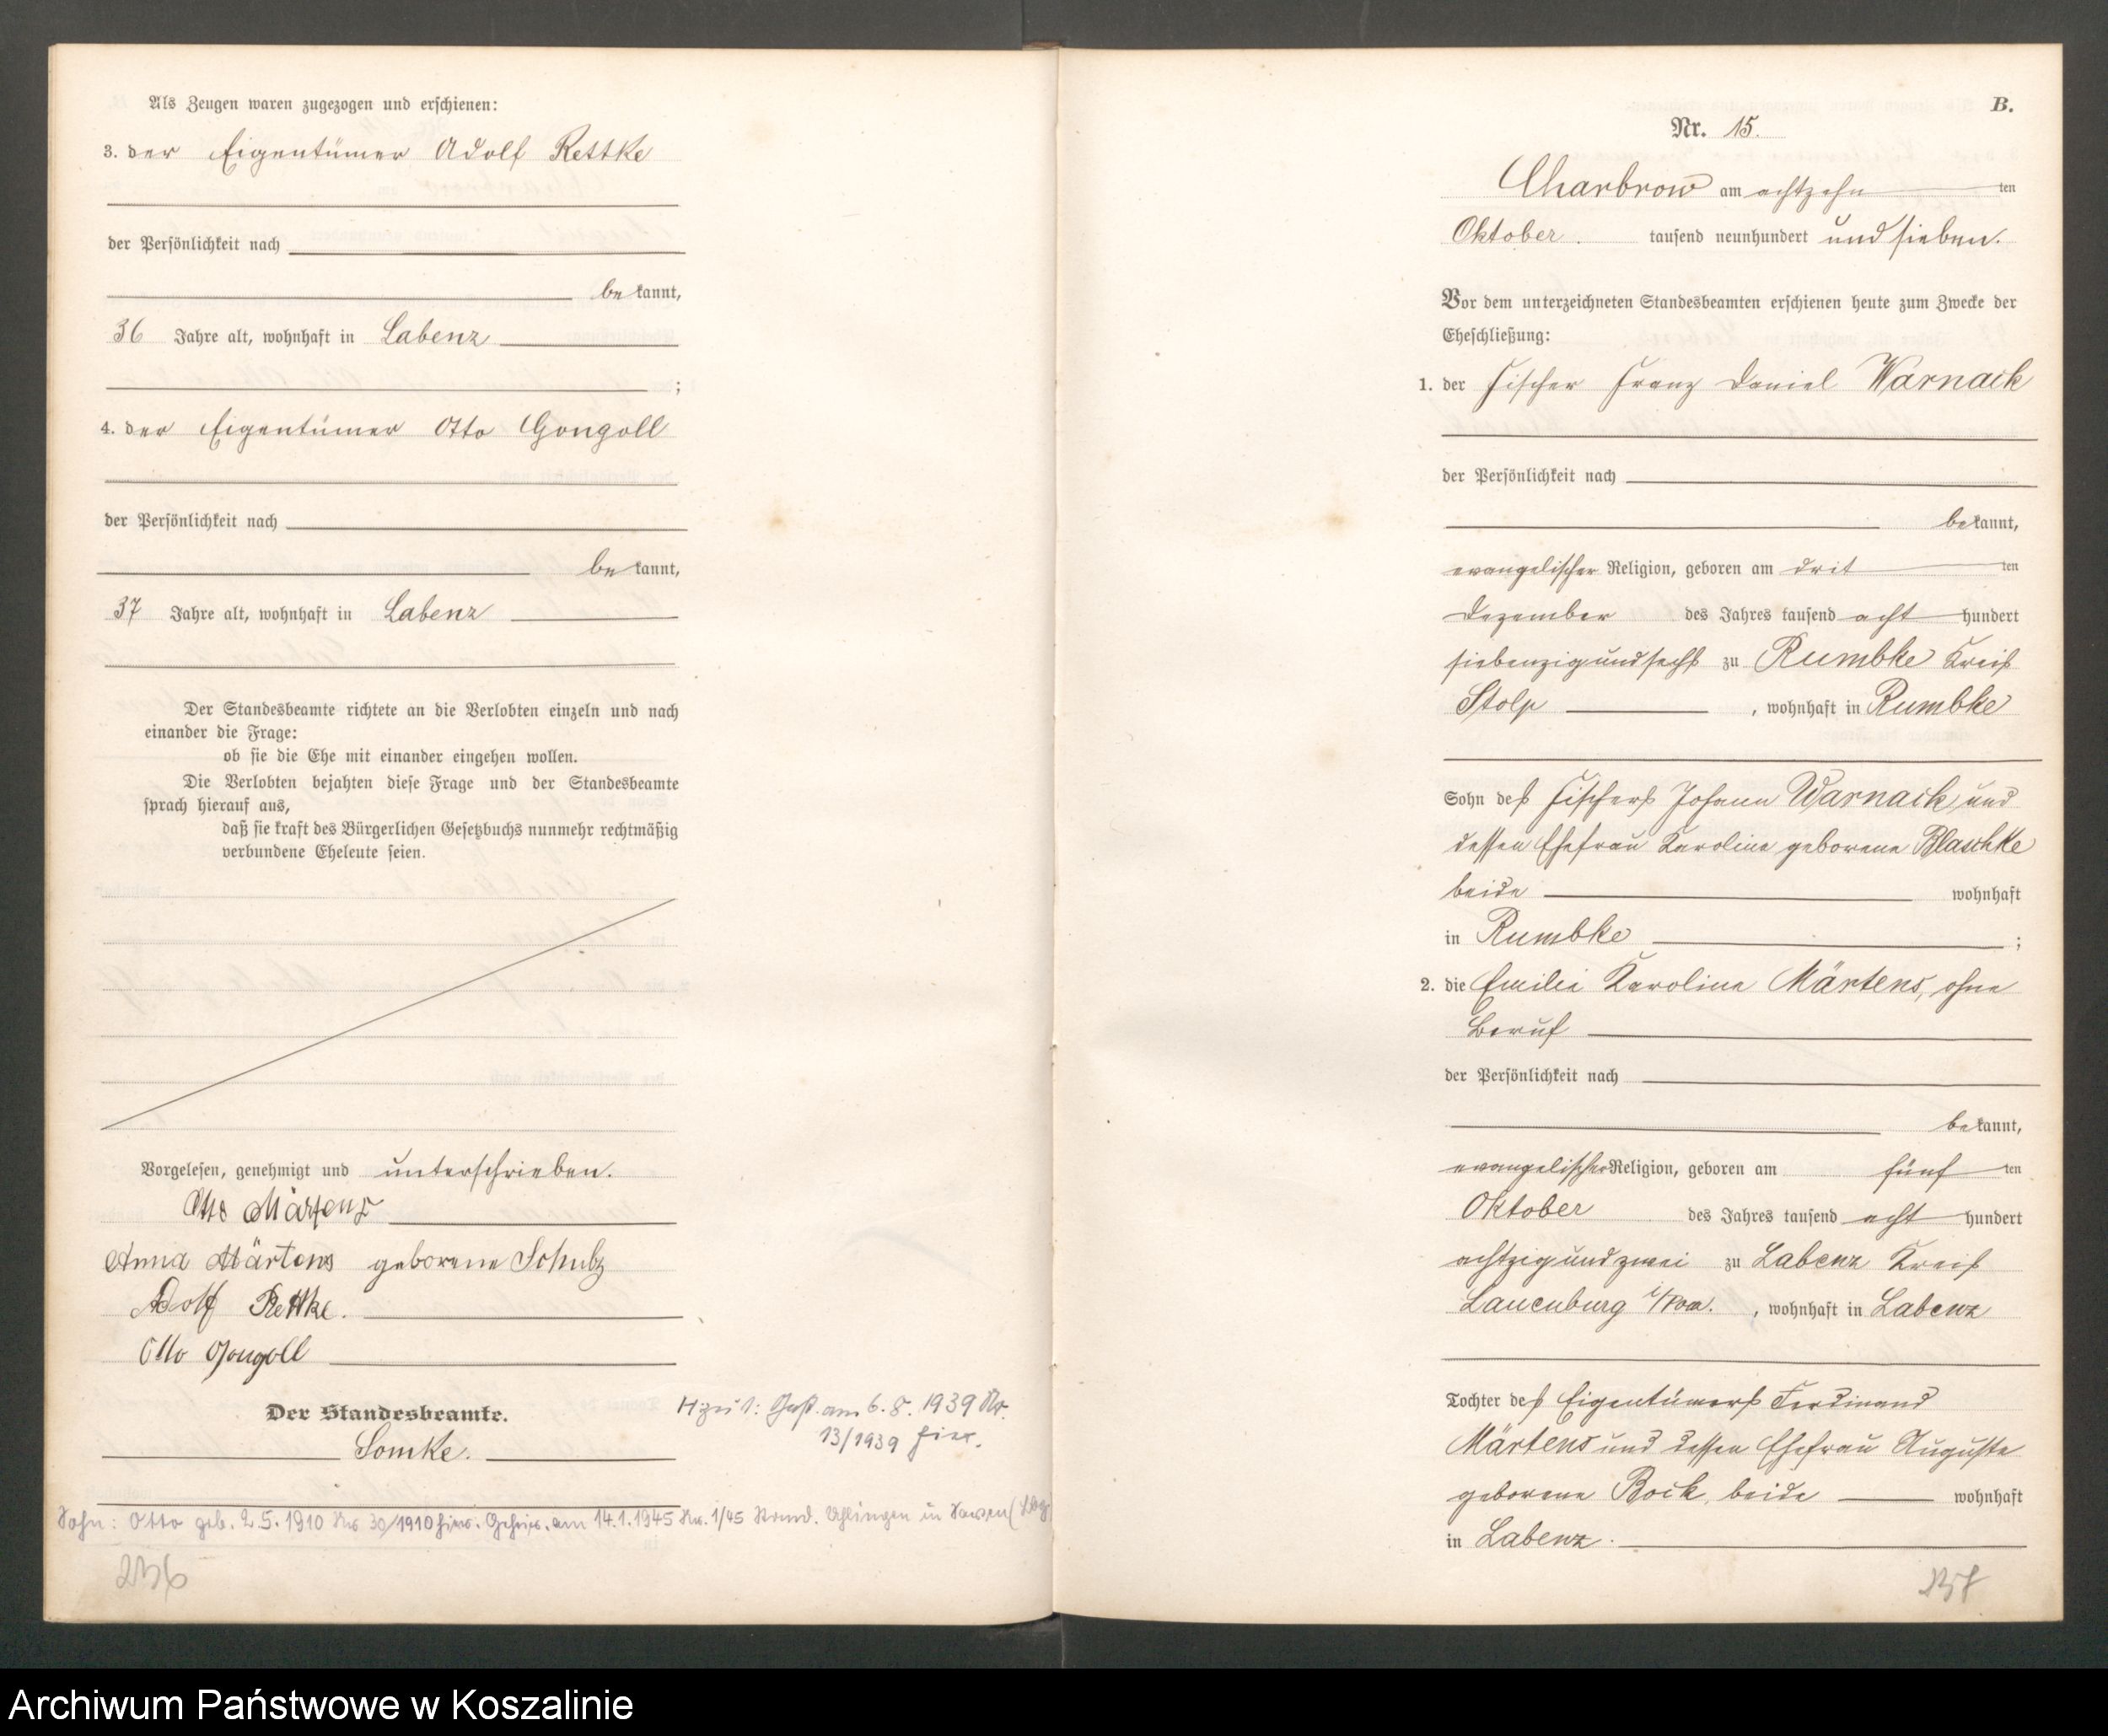 Als Zeugen waren zugezogen und erschienen:
3. der Eigentümer Adolf Rettke
der Persönlichkeit nach
be kannt,
36 Jahre alt, wohnhaft in Labenz
;
4. der Eigentümer Otto Gongoll
der Persönlichkeit nach
be kannt,
37 Jahre alt, wohnhaft in Labenz
Der Standesbeamte richtete an die Verlobten einzeln und nach
einander die Frage:
ob sie die Ehe mit einander eingehen wollen.
Die Verlobten bejahten diese Frage und der Standesbeamte
sprach hierauf aus,
daß sie kraft des Bürgerlichen Gesetzbuchs nunmehr rechtmäßig
verbundene Eheleute seien.
Vorgelesen, genehmigt und unterschrieben.
Otto Märtens
Anna Märtens geborene Schulz
Adolf Rettke.
Otto Gongoll
Der Standesbeamte.
Lomke.
H zu 1: Gest. am 6.8.1939 Nr.
13/1939 hier.
Sohn: Otto geb. 2.5.1910 Nr 30/1910 hier. Geheir. am 14.1.1945 Nr. 1/45 Stand. Uhlingen in
236
B.
Nr. 15.
Charbrow am achtzehn ten
Oktober tausend neunhundert und sieben.
Vor dem unterzeichneten Standesbeamten erschienen heute zum Zwecke der
Eheschließung:
1. der Fischer Franz Daniel Warnack
der Persönlichkeit nach
be kannt,
evangelischer Religion, geboren am drit ten
Dezember des Jahres tausend acht hundert
siebenzig und sechs zu Rumbke Kreis
Stolp , wohnhaft in Rumbke
Sohn des Fischers Johann Warnack und
dessen Ehefrau Karoline geborene Blaschke
beide wohnhaft
in Rumbke ;
2. die Emilie Karoline Märtens, ohne
Beruf
der Persönlichkeit nach
be kannt,
evangelischer Religion, geboren am fünf ten
Oktober des Jahres tausend acht hundert
achtzig und zwei zu Labenz Kreis
Lauenburg i/Pom. , wohnhaft in Labenz
Tochter des Eigentümers Ferdinand
Märtens und dessen Ehefrau Auguste
geborene Bock, beide wohnhaft
in Labenz.
Archiwum Państwowe w Koszalinie